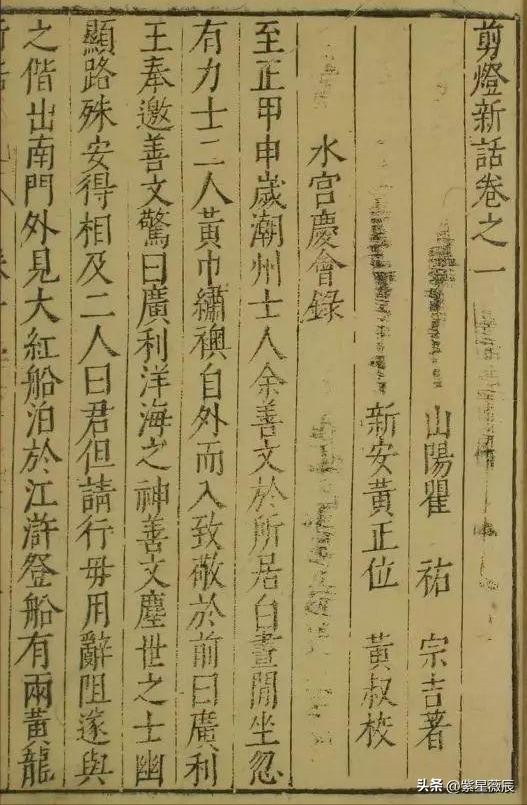 剪燈新話卷之一
山陽瞿　祐　宗吉著
新安黃正位　黃叔校
水宮慶會錄
至正甲申歲潮州士人余善文於所居白晝閒坐忽
有力士二人黃巾繡襖自外而入致敬於前曰廣利
王奉邀善文驚曰廣利洋海之神善文塵世之士幽
顯路殊安得相及二人曰君但請行毋用辭阻遂與
之偕出南門外見大紅船泊於江滸登船有兩黃龍
头条 @紫星薇辰